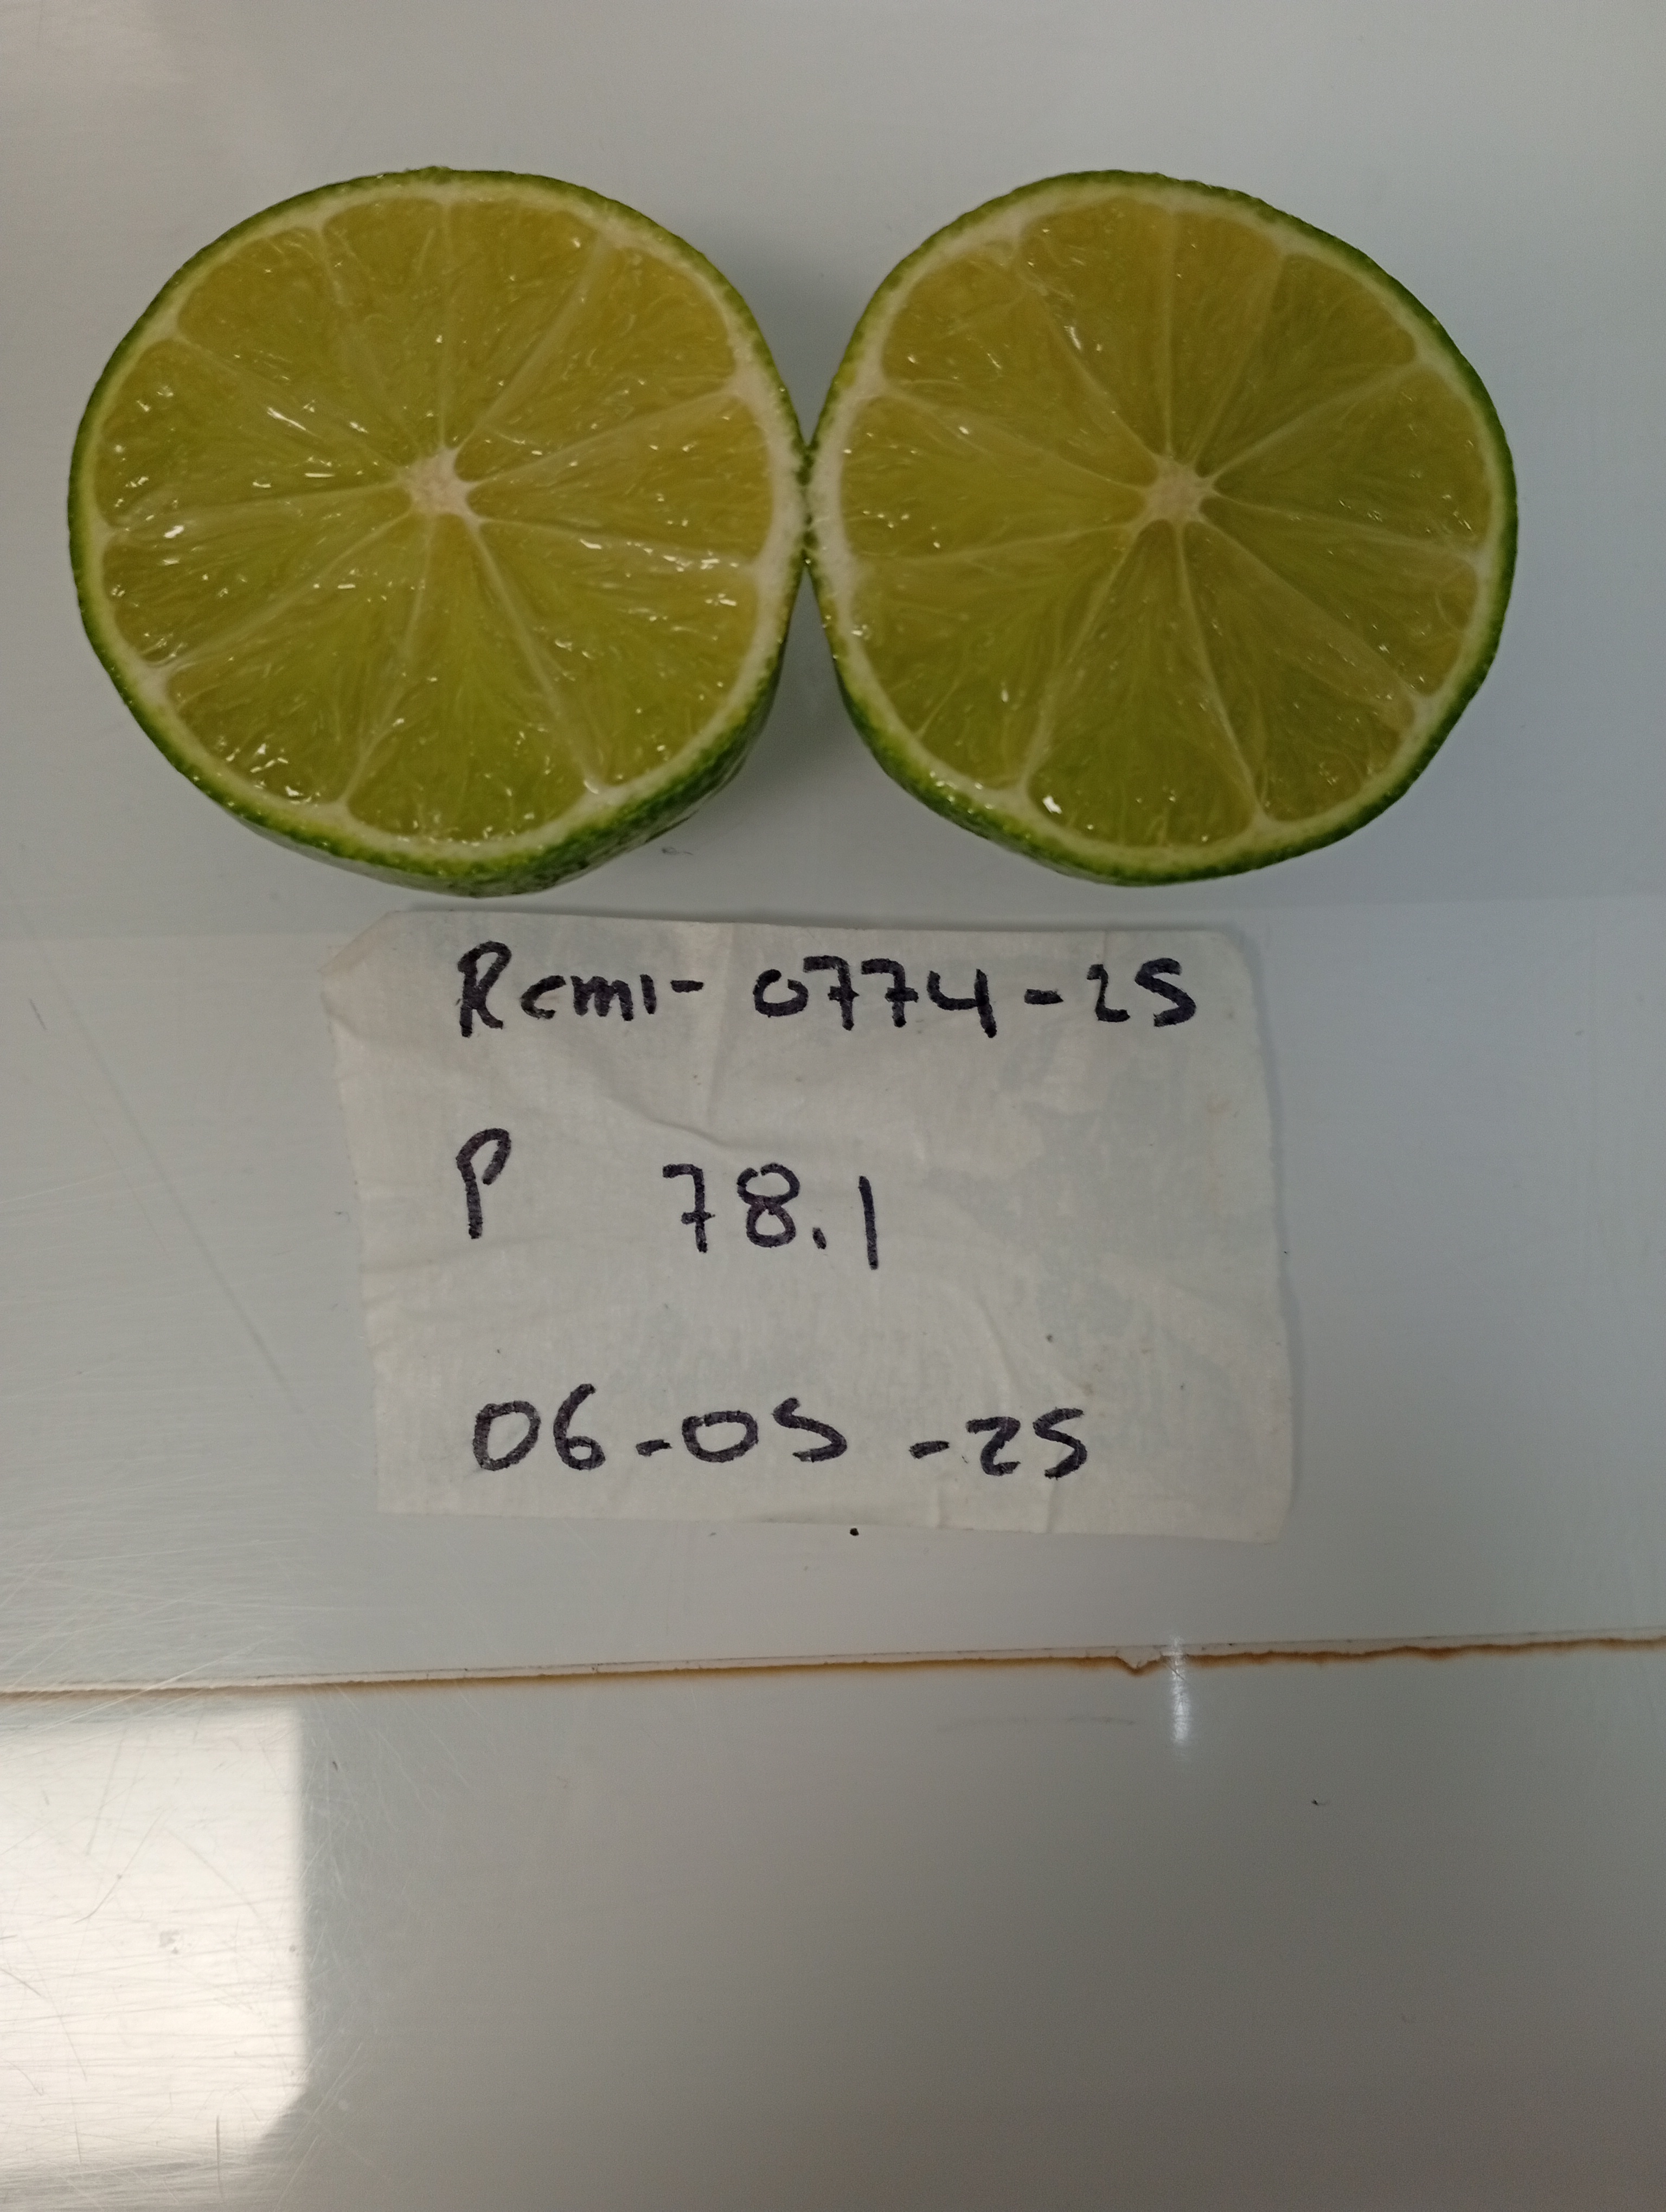 Rcmi- 0774-25
P 78.1
06-05-25